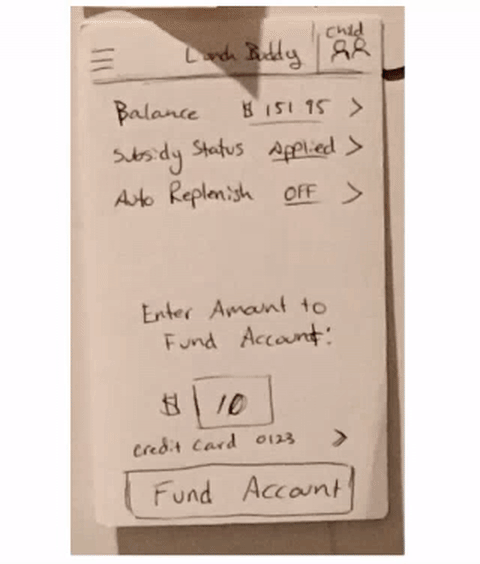 Child
Lunch Buddy
Balance $ 151 95 >
Subsidy Status Applied >
Auto Replenish OFF >
Enter Amount to
Fund Account:
$ 10
credit card 0123 >
Fund Account